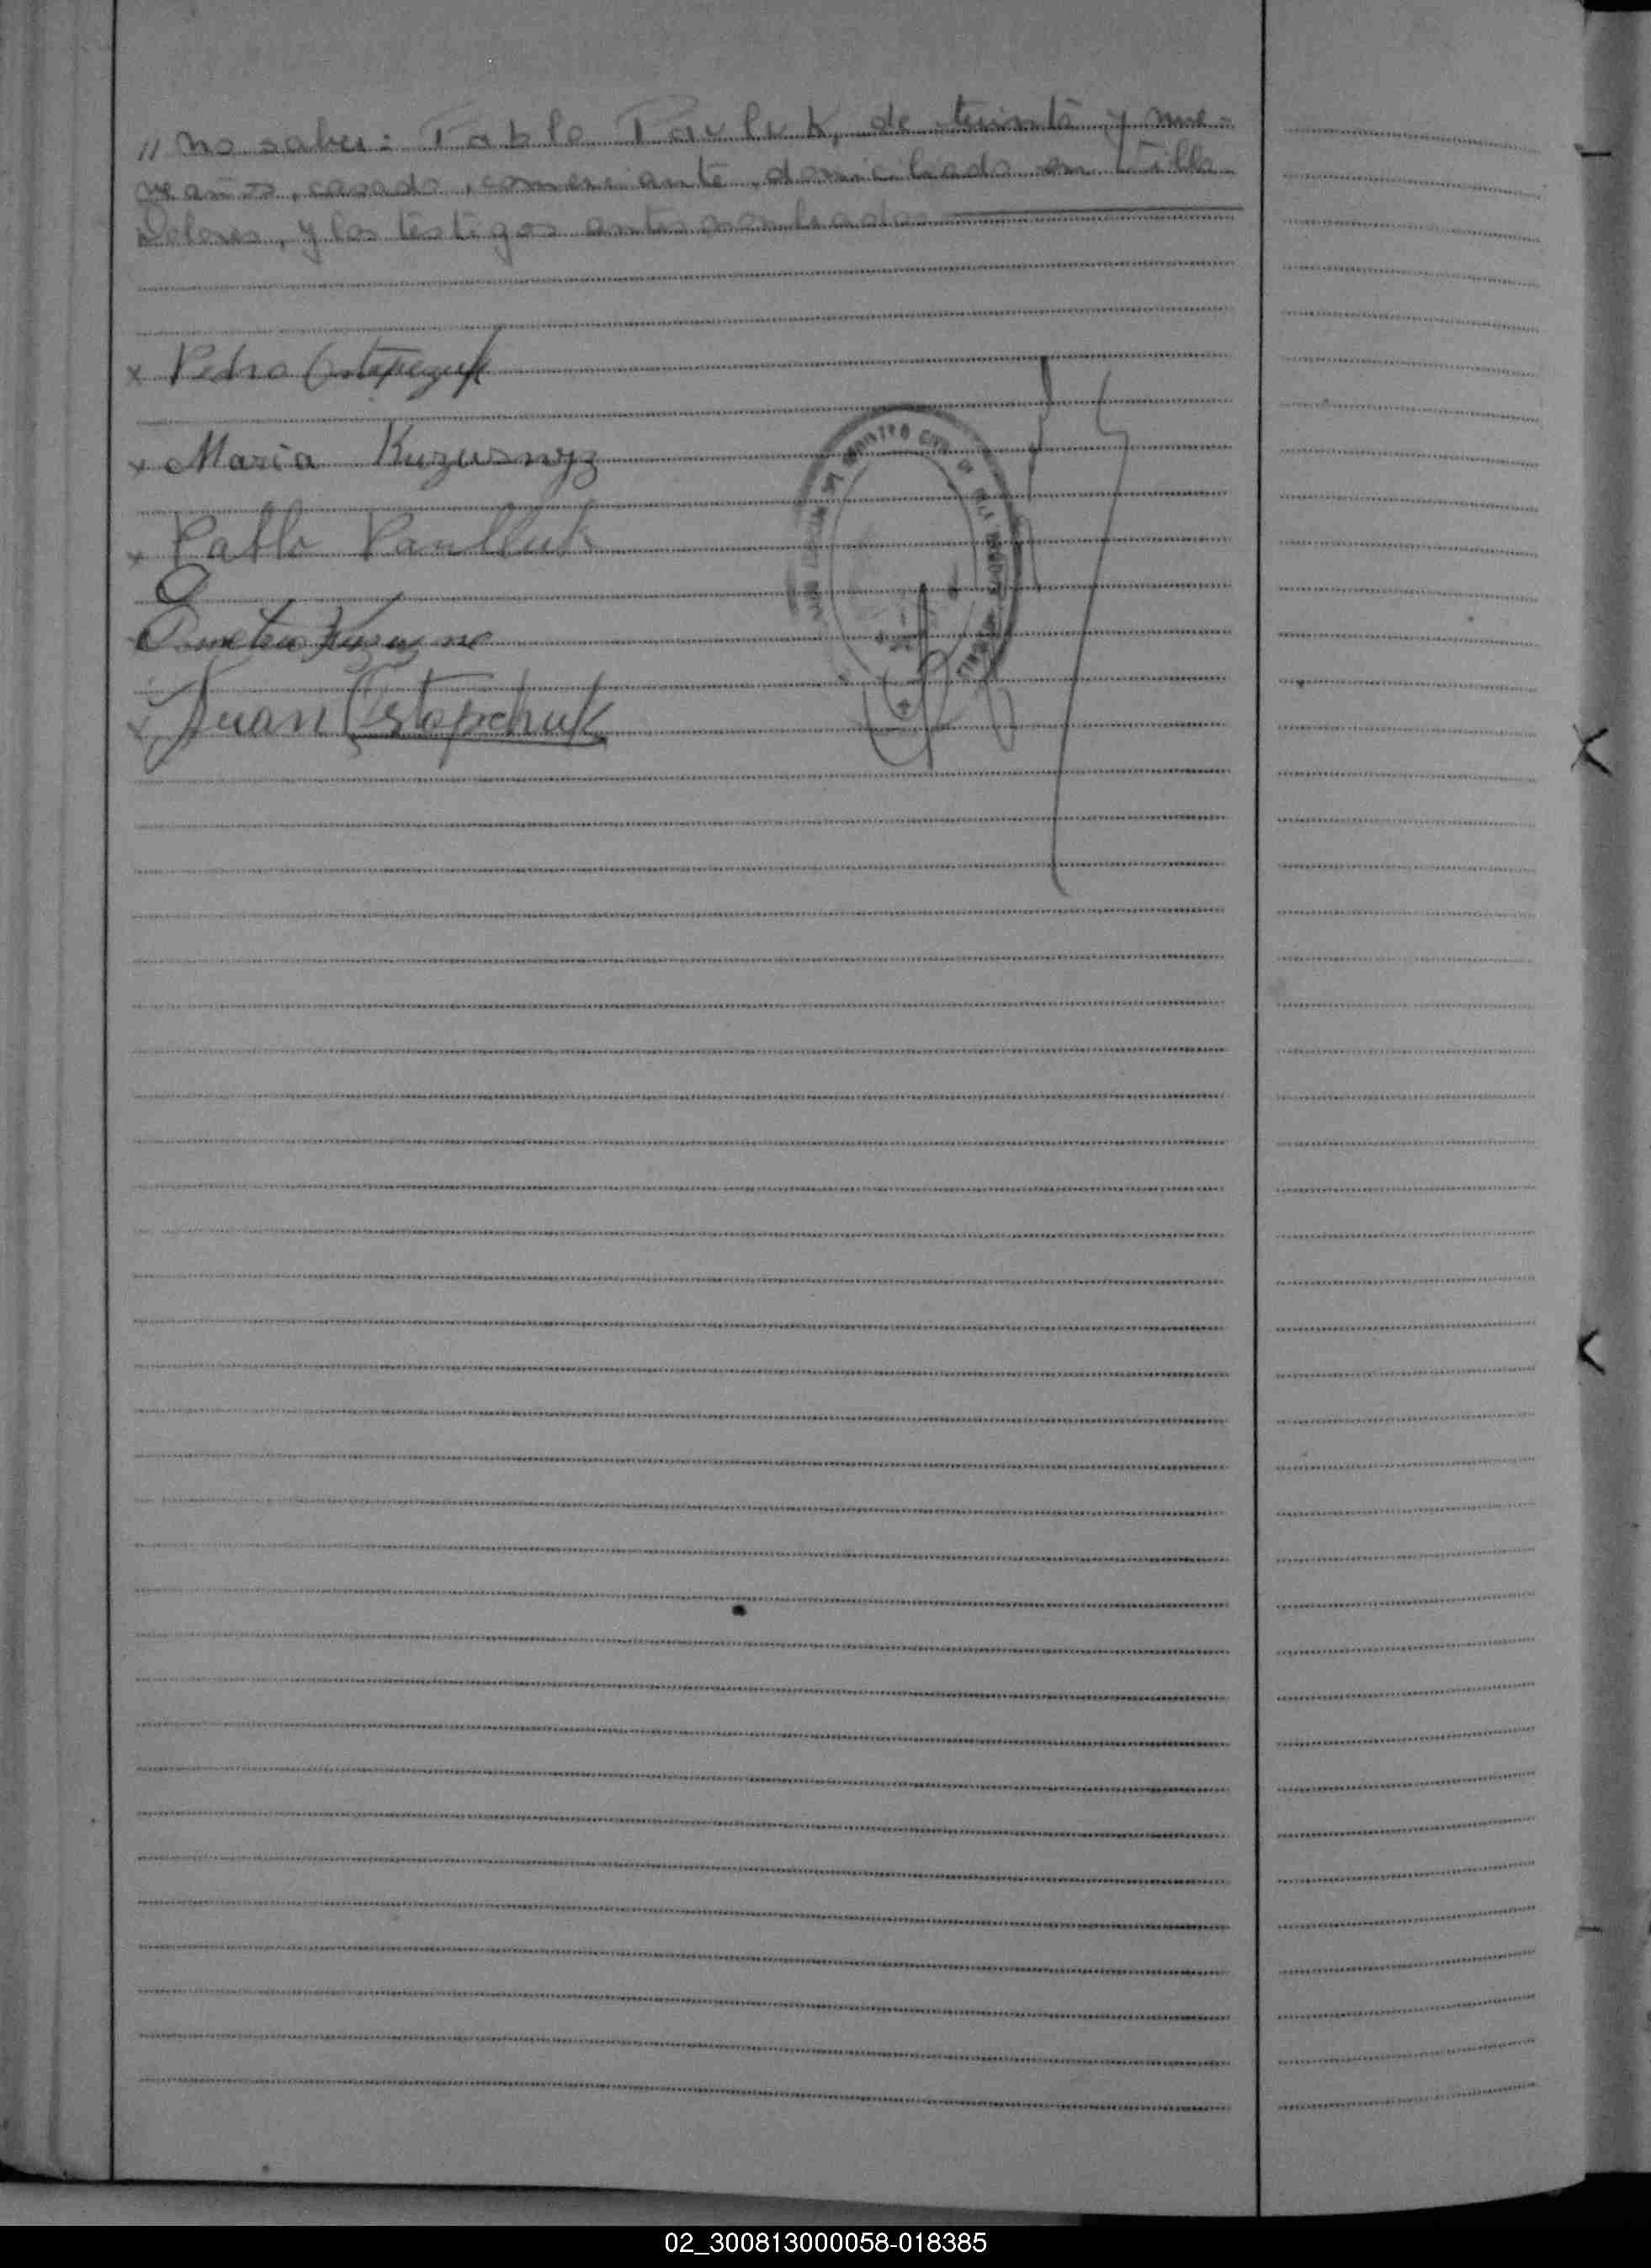 // no saber: Pablo Pavluk, de treinta y nue-
ve años, casado, comerciante, domiciliado en Villa
Dolores, y los testigos antes nombrados
x Pedro Ostapczuk
x Maria Kuzusnyz
x Pablo Paulluk
x Juan Ostapchuk
REGISTRO CIVIL
02_300813000058-018385